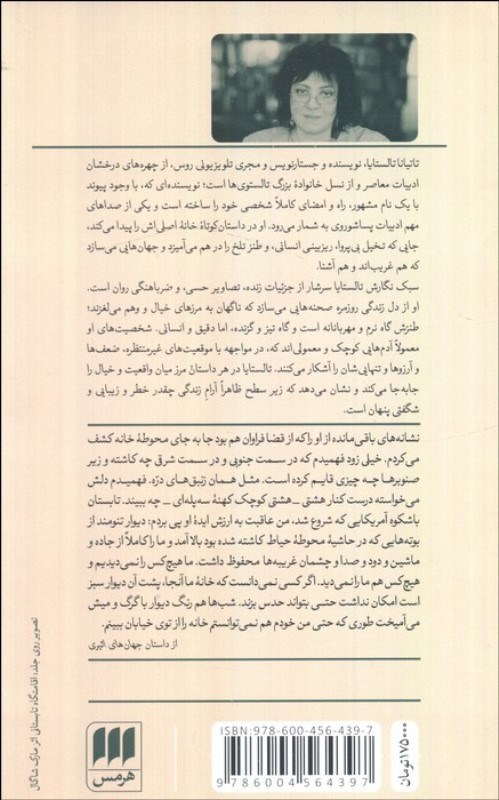 تاتیانا تالستایا، نویسنده و جستارنویس و مجری تلویزیونی روس، از چهره‌های درخشان
ادبیات معاصر و از نسل خانوادهٔ بزرگ تالستوی‌ها است؛ نویسنده‌ای که، با وجود پیوند
با یک نام مشهور، راه و امضای کاملاً شخصی خود را ساخته است و یکی از صداهای
مهم ادبیات پساشوروی به شمار می‌رود. او در داستان‌کوتاهْ خانهٔ اصلی‌اش را پیدا می‌کند،
جایی که تخیل بی‌پروا، ریزبینی انسانی، و طنز تلخ را در هم می‌آمیزد و جهان‌هایی می‌سازد
که هم غریب‌اند و هم آشنا.
سبک نگارش تالستایا سرشار از جزئیات زنده، تصاویر حسی، و ضرباهنگی روان است.
او از دل زندگی روزمره صحنه‌هایی می‌سازد که ناگهان به مرزهای خیال و وهم می‌لغزند؛
طنزش گاه نرم و مهربانانه است و گاه تیز و گزنده، اما دقیق و انسانی. شخصیت‌های او
معمولاً آدم‌هایی کوچک و معمولی‌اند که، در مواجهه با موقعیت‌های غیرمنتظره، ضعف‌ها
و آرزوها و تنهایی‌شان را آشکار می‌کنند. تالستایا در هر داستان مرز میان واقعیت و خیال را
جابه‌جا می‌کند و نشان می‌دهد که زیر سطح ظاهراً آرامِ زندگی چقدر خطر و زیبایی و
شگفتی پنهان است.
نشانه‌های باقی‌مانده از او را که از قضا فراوان هم بود جا به جای محوطهٔ خانه کشف
می‌کردم. خیلی زود فهمیدم که در سمت جنوبی و در سمت شرقی چه کاشته و زیر
صنوبرها چه چیزی قایم کرده است. مثل همان زنبق‌های درّه. فهمیدم دلش
می‌خواسته درست کنار هشتی ــ هشتی کوچک کهنهٔ سه‌پله‌ای ــ چه ببیند. تابستان
باشکوه آمریکایی که شروع شد، من عاقبت به ارزش ایدهٔ او پی بردم: دیوار تنومند از
بوته‌هایی که در حاشیهٔ محوطهٔ حیاط کاشته شده بود بالا آمد و ما را کاملاً از جاده و
ماشین و دود و صدا و چشمان غریبه‌ها محفوظ داشت. ما هیچ‌کس را نمی‌دیدیم و
هیچ‌کس هم ما را نمی‌دید. اگر کسی نمی‌دانست که خانهٔ ما آنجا، پشت آن دیوار سبز
است امکان نداشت حتی بتواند حدس بزند. شب‌ها هم رنگ دیوار با گرگ و میش
می‌آمیخت طوری که حتی من خودم هم نمی‌توانستم خانه را از توی خیابان ببینم.
از داستان جهان‌های اثیری
تصویر روی جلد: اقامتگاه تابستانی اثر مارک شاگال
هرمس
ISBN: 978-600-456-439-7
9 786004 564397
۱۷۵۰۰۰ تومان